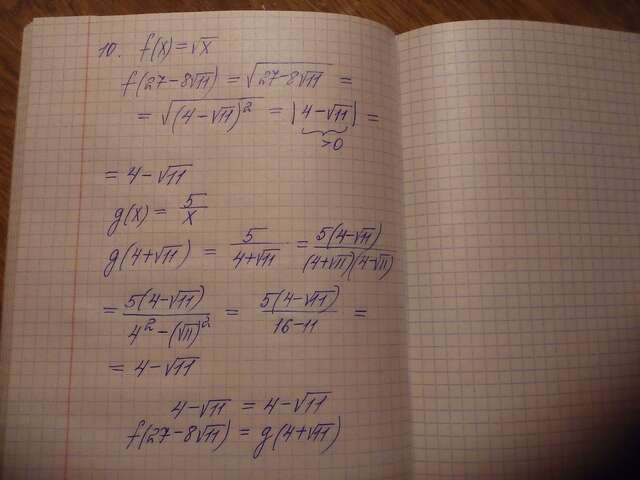 10. f(x) = √x
f(27-8√11) = √(27-8√11) =
= √((4-√11)²) = |4-√11| =
>0
= 4-√11
g(x) = 5/x
g(4+√11) = 5/(4+√11) = 5(4-√11)/((4+√11)(4-√11))
= 5(4-√11)/(4²-(√11)²) = 5(4-√11)/(16-11) =
= 4-√11
4-√11 = 4-√11
f(27-8√11) = g(4+√11)